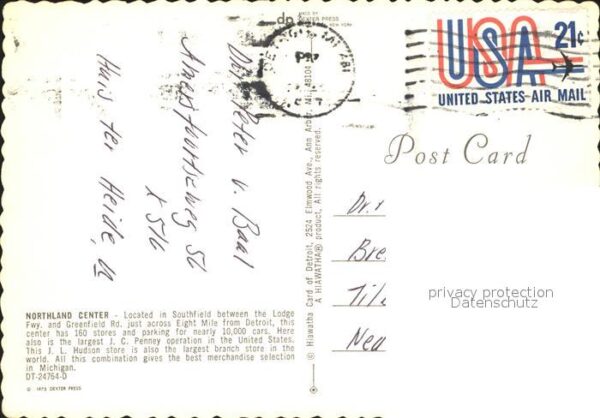 MADE BY
dp DEXTER PRESS
NEW YORK
USA 21c
UNITED STATES AIR MAIL
Post Card
Dr.
Bre
Til
Nea
privacy protection
Datenschutz
Peter v. Baal
56
x 516
Huis ter Heide, U
© Hiawatha Card of Detroit, 2524 Elmwood Ave., Ann Arbor, Mich. 48104
A HIAWATHA® product, All rights reserved.
NORTHLAND CENTER - Located in Southfield between the Lodge
Fwy. and Greenfield Rd. just across Eight Mile from Detroit, this
center has 160 stores and parking for nearly 10,000 cars. Here
also is the largest J. C. Penney operation in the United States.
This J. L. Hudson store is also the largest branch store in the
world. All this combination gives the best merchandise selection
in Michigan.
DT-24764-D
© 1973 DEXTER PRESS